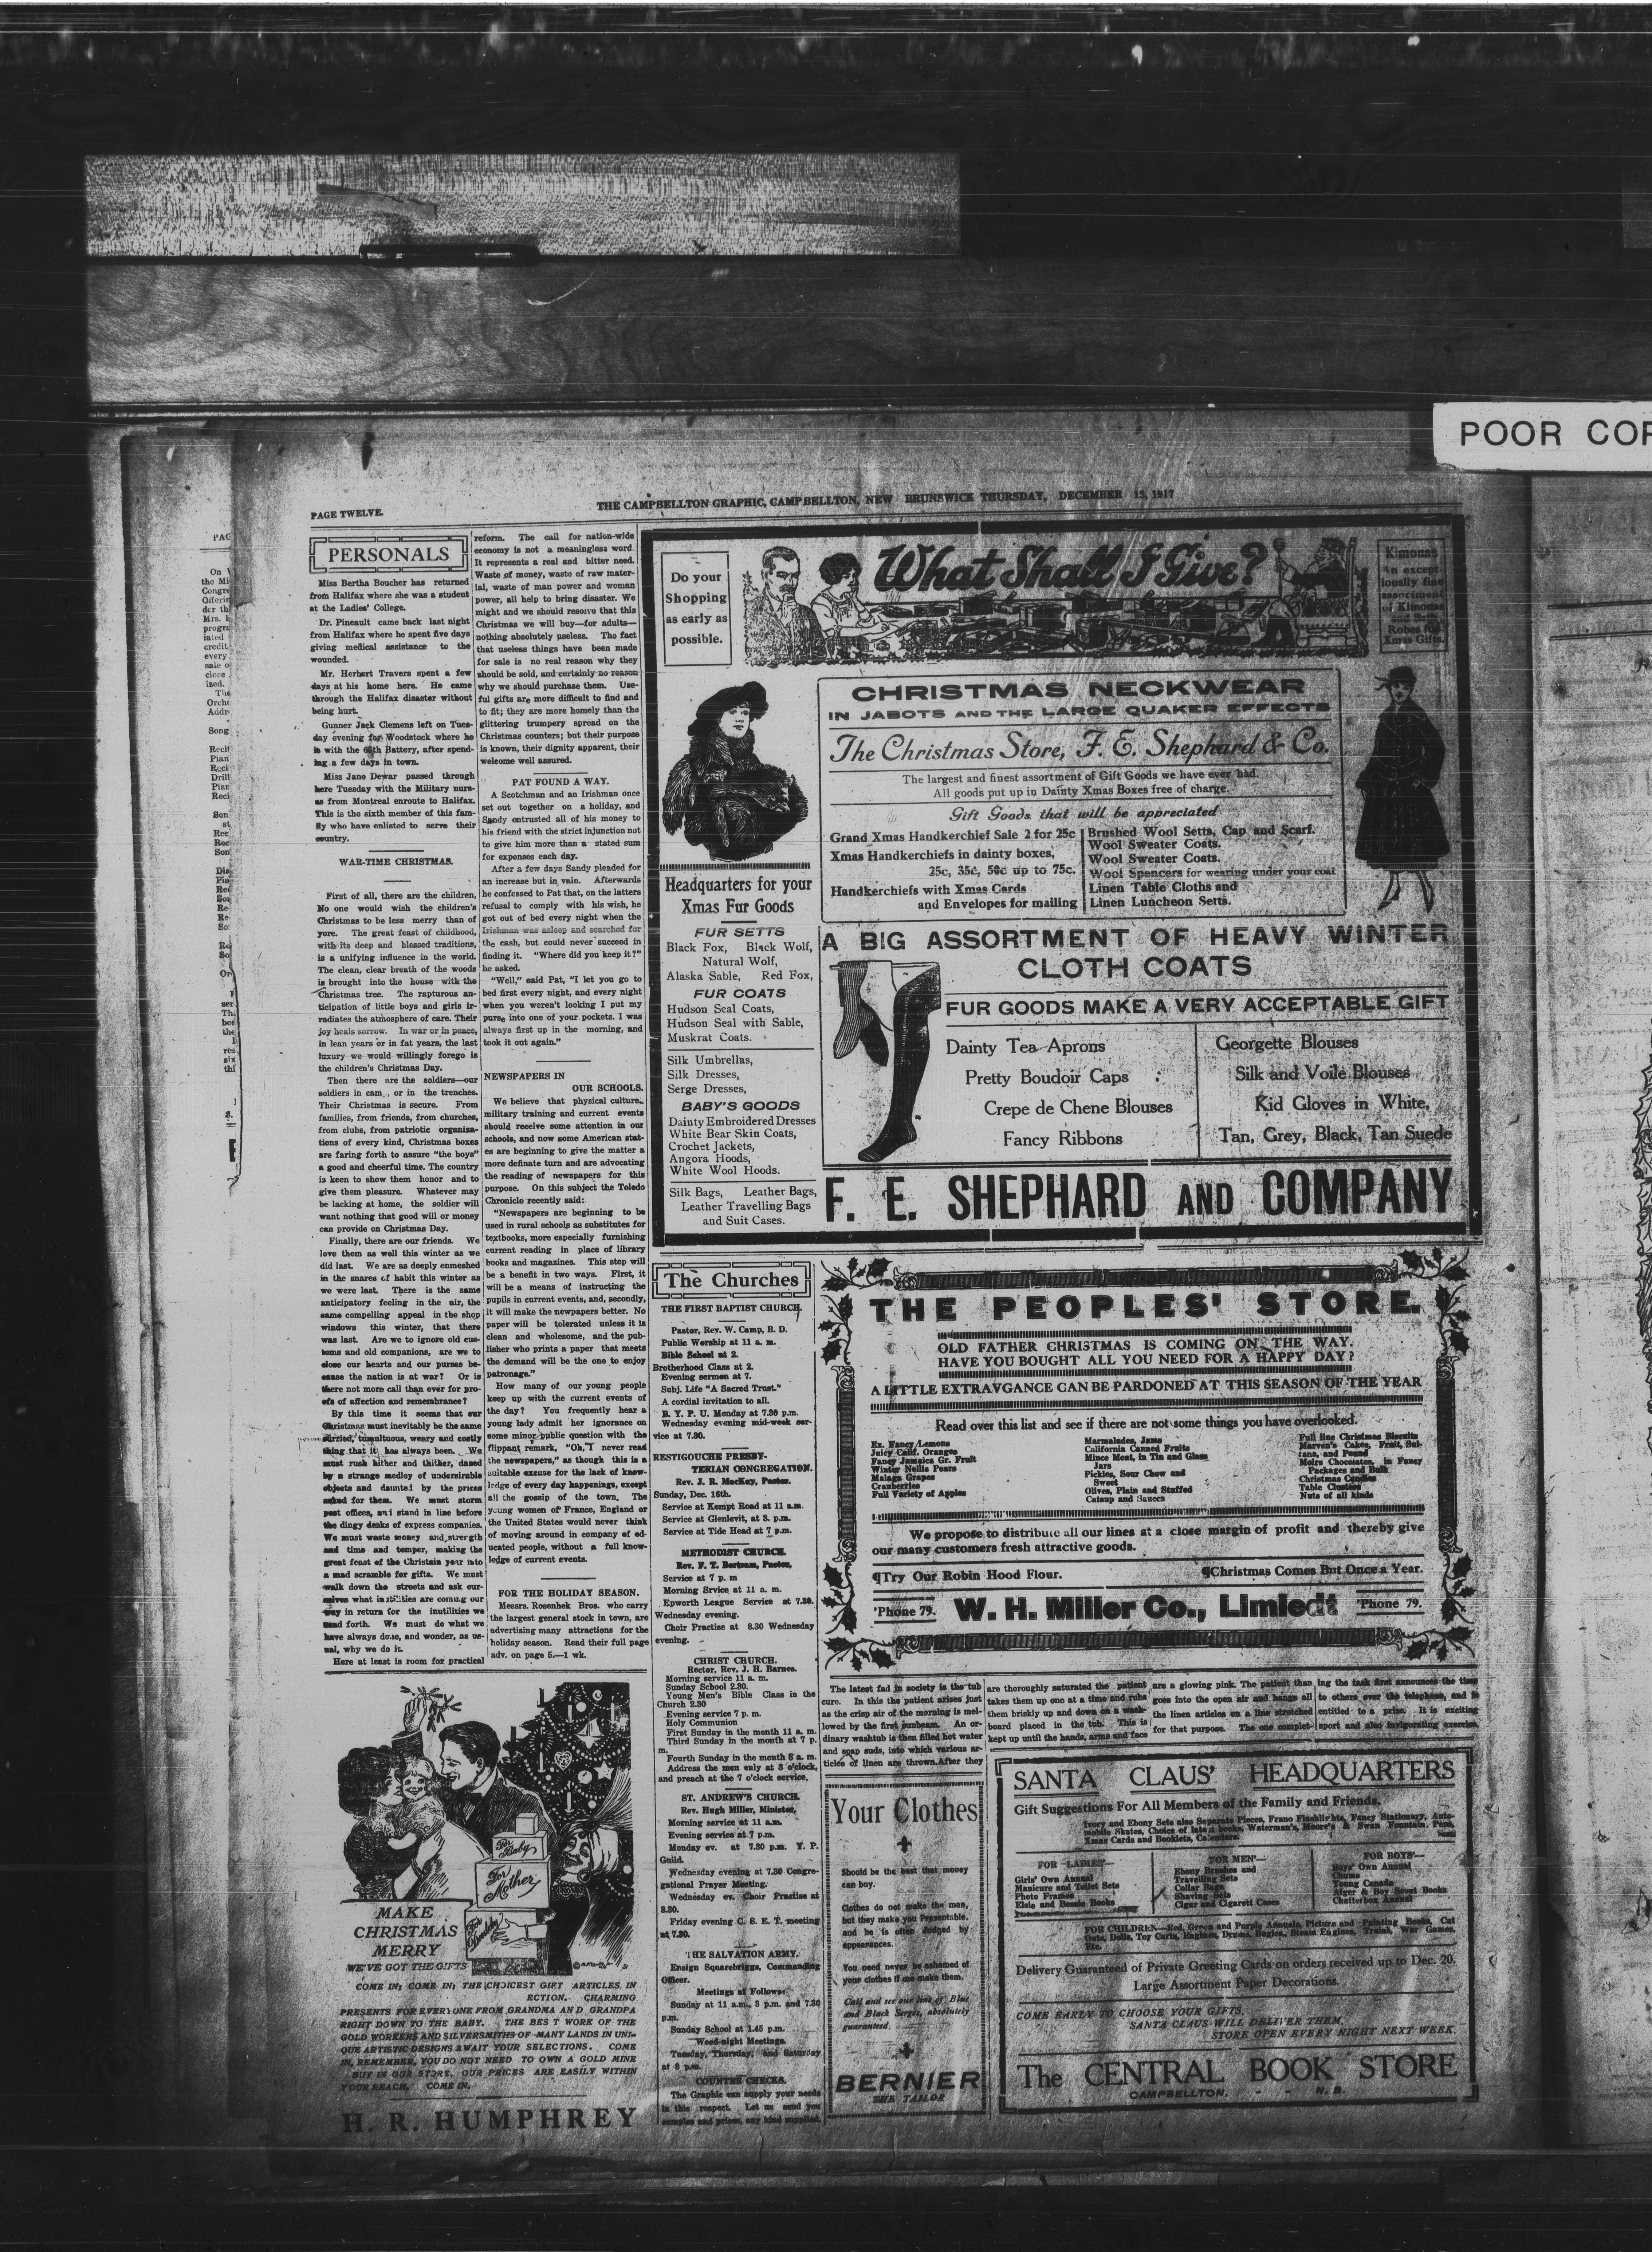 POOR COP
PAGE TWELVE.
THE CAMPBELLTON GRAPHIC, CAMPBELLTON, NEW BRUNSWICK THURSDAY, DECEMBER 13, 1917
PERSONALS
Miss Bertha Boucher has returned
from Halifax where she was a student
at the Ladies' College.
Dr. Pineault came back last night
from Halifax where he spent five days
giving medical assistance to the
wounded.
Mr. Herbert Travers spent a few
days at his home here. He came
through the Halifax disaster without
being hurt.
Gunner Jack Clemens left on Tues-
day evening for Woodstock where he
is with the 65th Battery, after spend-
ing a few days in town.
Miss Jane Dewar passed through
here Tuesday with the Military nurs-
es from Montreal enroute to Halifax.
This is the sixth member of this fam-
ily who have enlisted to serve their
country.
WAR-TIME CHRISTMAS.
First of all, there are the children,
No one would wish the children's
Christmas to be less merry than of
yore. The great feast of childhood,
with its deep and blessed traditions,
is a unifying influence in the world.
The clean, clear breath of the woods
is brought into the house with the
Christmas tree. The rapturous an-
ticipation of little boys and girls ir-
radiates the atmosphere of care. Their
joy heals sorrow. In war or in peace,
in lean years or in fat years, the last
luxury we would willingly forego is
the children's Christmas Day.
Then there are the soldiers—our
soldiers in cam , or in the trenches.
Their Christmas is secure. From
families, from friends, from churches,
from clubs, from patriotic organiza-
tions of every kind, Christmas boxes
are faring forth to assure "the boys"
a good and cheerful time. The country
is keen to show them honor and to
give them pleasure. Whatever may
be lacking at home, the soldier will
want nothing that good will or money
can provide on Christmas Day.
Finally, there are our friends. We
love them as well this winter as we
did last. We are as deeply enmeshed
in the snares of habit this winter as
we were last. There is the same
anticipatory feeling in the air, the
same compelling appeal in the shop
windows this winter, that there
was last. Are we to ignore old cus-
toms and old companions, are we to
close our hearts and our purses be-
cause the nation is at war? Or is
there not more call than ever for pro-
ofs of affection and remembrance?
By this time it seems that our
Christmas must inevitably be the same
hurried, tumultuous, weary and costly
thing that it has always been. We
must rush hither and thither, dazed
by a strange medley of undersirable
objects and daunted by the prices
asked for them. We must storm
post offices, and stand in line before
the dingy desks of express companies.
We must waste money and strength
and time and temper, making the
great feast of the Christain year into
a mad scramble for gifts. We must
walk down the streets and ask our-
selves what inutilities are coming our
way in return for the inutilities we
send forth. We must do what we
have always done, and wonder, as us-
ual, why we do it.
Here at least is room for practical
reform. The call for nation-wide
economy is not a meaningless word
It represents a real and bitter need.
Waste of money, waste of raw mater-
ial, waste of man power and woman
power, all help to bring disaster. We
might and we should resolve that this
Christmas we will buy—for adults—
nothing absolutely useless. The fact
that useless things have been made
for sale is no real reason why they
should be sold, and certainly no reason
why we should purchase them. Use-
ful gifts are more difficult to find and
to fit; they are more homely than the
glittering trumpery spread on the
Christmas counters; but their purpose
is known, their dignity apparent, their
welcome well assured.
PAT FOUND A WAY.
A Scotchman and an Irishman once
set out together on a holiday, and
Sandy entrusted all of his money to
his friend with the strict injunction not
to give him more than a stated sum
for expenses each day.
After a few days Sandy pleaded for
an increase but in vain. Afterwards
he confessed to Pat that, on the latters
refusal to comply with his wish, he
got out of bed every night when the
Irishman was asleep and searched for
the cash, but could never succeed in
finding it. "Where did you keep it?"
he asked.
"Well," said Pat, "I let you go to
bed first every night, and every night
when you weren't looking I put my
purse into one of your pockets. I was
always first up in the morning, and
took it out again."
NEWSPAPERS IN
OUR SCHOOLS.
We believe that physical culture,
military training and current events
should receive some attention in our
schools, and now some American stat-
es are beginning to give the matter a
more definate turn and are advocating
the reading of newspapers for this
purpose. On this subject the Toledo
Chronicle recently said:
"Newspapers are beginning to be
used in rural schools as substitutes for
textbooks, more especially furnishing
current reading in place of library
books and magazines. This step will
be a benefit in two ways. First, it
will be a means of instructing the
pupils in current events, and, secondly,
it will make the newpapers better. No
paper will be tolerated unless it is
clean and wholesome, and the pub-
lisher who prints a paper that meets
the demand will be the one to enjoy
patronage."
How many of our young people
keep up with the current events of
the day? You frequently hear a
young lady admit her ignorance on
some minor public question with the
flippant remark, "Oh, I never read
the newspapers," as though this is a
suitable excuse for the lack of know-
ledge of every day happenings, except
all the gossip of the town. The
young women of France, England or
the United States would never think
of moving around in company of ed-
ucated people, without a full know-
ledge of current events.
FOR THE HOLIDAY SEASON.
Messrs. Rosenhek Bros. who carry
the largest general stock in town, are
advertising many attractions for the
holiday season. Read their full page
adv. on page 5.—1 wk.
For Baby
For Mother
For Daddy
MAKE
CHRISTMAS
MERRY
WE'VE GOT THE GIFTS
COME IN; COME IN; THE CHOICEST GIFT ARTICLES IN
ECTION. CHARMING
PRESENTS FOR EVERYONE FROM GRANDMA AND GRANDPA
RIGHT DOWN TO THE BABY. THE BEST WORK OF THE
GOLD WORKERS AND SILVERSMITHS OF MANY LANDS IN UNI-
QUE ARTISTIC DESIGNS AWAIT YOUR SELECTIONS. COME
IN, REMEMBER, YOU DO NOT NEED TO OWN A GOLD MINE
BUY IN OUR STORE. OUR PRICES ARE EASILY WITHIN
YOUR REACH. COME IN.
H. R. HUMPHREY
Do your
Shopping
as early as
possible.
What Shall I Give?
Kimonas
An except-
ionally fine
assortment
of Kimonas
and Bath
Robes for
Xmas Gifts.
CHRISTMAS NECKWEAR
IN JABOTS AND THE LARGE QUAKER EFFECTS
The Christmas Store, F. E. Shephard & Co.
The largest and finest assortment of Gift Goods we have ever had.
All goods put up in Dainty Xmas Boxes free of charge.
Gift Goods that will be appreciated
Grand Xmas Handkerchief Sale 2 for 25c
Xmas Handkerchiefs in dainty boxes,
25c, 35c, 50c up to 75c.
Handkerchiefs with Xmas Cards
and Envelopes for mailing
Brushed Wool Setts, Cap and Scarf.
Wool Sweater Coats.
Wool Sweater Coats.
Wool Spencers for wearing under your coat
Linen Table Cloths and
Linen Luncheon Setts.
Headquarters for your
Xmas Fur Goods
FUR SETTS
Black Fox, Black Wolf,
Natural Wolf,
Alaska Sable, Red Fox,
FUR COATS
Hudson Seal Coats,
Hudson Seal with Sable,
Muskrat Coats.
Silk Umbrellas,
Silk Dresses,
Serge Dresses,
BABY'S GOODS
Dainty Embroidered Dresses
White Bear Skin Coats,
Crochet Jackets,
Angora Hoods,
White Wool Hoods.
Silk Bags, Leather Bags,
Leather Travelling Bags
and Suit Cases.
A BIG ASSORTMENT OF HEAVY WINTER
CLOTH COATS
FUR GOODS MAKE A VERY ACCEPTABLE GIFT
Dainty Tea Aprons
Pretty Boudoir Caps
Crepe de Chene Blouses
Fancy Ribbons
Georgette Blouses
Silk and Voile Blouses
Kid Gloves in White,
Tan, Grey, Black, Tan Suede
F. E. SHEPHARD AND COMPANY
The Churches
THE FIRST BAPTIST CHURCH.
Pastor, Rev. W. Camp, B. D.
Public Worship at 11 a. m.
Bible School at 2.
Brotherhood Class at 2.
Evening sermen at 7.
Subj. Life "A Sacred Trust."
A cordial invitation to all.
B. Y. P. U. Monday at 7.30 p.m.
Wednesday evening mid-week ser-
vice at 7.30.
RESTIGOUCHE PRESBY-
TERIAN CONGREGATION.
Rev. J. R. MacKay, Pastor.
Sunday, Dec. 16th.
Service at Kempt Road at 11 a.m.
Service at Glenlevit, at 3. p.m.
Service at Tide Head at 7 p.m.
METHODIST CHURCH.
Rev. F. T. Bertram, Pastor,
Service at 7 p. m
Morning Srvice at 11 a. m.
Epworth League Service at 7.30.
Wednesday evening.
Choir Practise at 8.30 Wednesday
evening.
CHRIST CHURCH.
Rector, Rev. J. H. Barnes.
Morning service 11 a. m.
Sunday School 2.30.
Young Men's Bible Class in the
Church 2.30
Evening service 7 p. m.
Holy Communion
First Sunday in the month 11 a. m.
Third Sunday in the month at 7 p.
m.
Fourth Sunday in the month 8 a. m.
Address the men only at 3 o'clock,
and preach at the 7 o'clock service.
ST. ANDREW'S CHURCH.
Rev. Hugh Miller, Minister,
Morning service at 11 a.m.
Evening service at 7 p.m.
Monday ev. at 7.30 p.m. Y. P.
Guild.
Wednesday evening at 7.30 Congre-
gational Prayer Meeting.
Wednesday ev. Choir Practise at
8.30.
Friday evening C. S. E. T. meeting
at 7.30.
THE SALVATION ARMY.
Ensign Squarebriggs, Commanding
Officer.
Meetings at Follows:
Sunday at 11 a.m., 3 p.m. and 7.30
p.m.
Sunday School at 1.45 p.m.
Weed-night Meetings.
Tuesday, Thursday, and Saturday
at 8 p.m.
COUNTER CHECKS.
The Graphic can supply your needs
in this respect. Let us send you
samples and prices, any kind supplied.
THE PEOPLES' STORE.
OLD FATHER CHRISTMAS IS COMING ON THE WAY.
HAVE YOU BOUGHT ALL YOU NEED FOR A HAPPY DAY?
A LITTLE EXTRAVGANCE CAN BE PARDONED AT THIS SEASON OF THE YEAR
Read over this list and see if there are not some things you have overlooked.
Ex. Fancy Lemons
Juicy Calif. Oranges
Fancy Jamaica Gr. Fruit
Winter Nellis Pears
Malaga Grapes
Cranberries
Full Variety of Apples
Marmalades, Jams
California Canned Fruits
Mince Meat, in Tin and Glass
Jars
Pickles, Sour Chow and
Sweet
Olives, Plain and Stuffed
Catsup and Sauces
Full line Christmas Biscuits
Marven's Cakes, Fruit, Sul-
tana, and Pound
Moirs Chocolates, in Fancy
Packages and Bulk
Christmas Candles
Table Clusters
Nuts of all kinds
We propose to distribute all our lines at a close margin of profit and thereby give
our many customers fresh attractive goods.
¶Try Our Robin Hood Flour.
¶Christmas Comes But Once a Year.
'Phone 79.
W. H. Miller Co., Limiedt
'Phone 79.
The latest fad in society is the tub
cure. In this the patient arises just
as the crisp air of the morning is mel-
lowed by the first sunbeam. An or-
dinary washtub is then filled hot water
and soap suds, into which various ar-
ticles of linen are thrown.After they
are thoroughly saturated the patient
takes them up one at a time and rubs
them briskly up and down on a wash-
board placed in the tub. This is
kept up until the hands, arms and face
are a glowing pink. The patient than
goes into the open air and hangs all
the linen articles on a line stretched
for that purpose. The one complet-
ing the task first announces the time
to others over the telephone, and is
entitled to a prize. It is exciting
sport and also invigorating exercise.
Your Clothes
Should be the best that money
can boy.
Clothes do not make the man,
but they make you Presentable,
and he is often Judged by
appearances.
You need never be ashamed of
your clothes if we make them.
Call and see our line of Blue
and Black Serges, absolutely
guaranteed.
BERNIER
THE TAILOR
SANTA CLAUS' HEADQUARTERS
Gift Suggestions For All Members of the Family and Friends.
Ivory and Ebony Sets also Separate Pieces, Frano Flashlights, Fancy Stationary, Auto-
mobile Skates, Choice of latest books, Waterman's, Moore's & Swan Fountain Pens,
Xmas Cards and Booklets, Calendars.
FOR LADIES'—
Girls' Own Annual
Manicure and Toilet Sets
Photo Frames
Elsie and Bessie Books
FOR MEN'—
Ebony Brushes and
Travelling Sets
Collar Bags
Shaving Sets
Cigar and Cigarett Cases
FOR BOYS'—
Boys' Own Annual
Chums
Young Canada
Alger & Boy Scout Books
Chatterbox Annual
FOR CHILDREN—Red, Green and Purple Annuals, Picture and Painting Books, Cut
Outs, Dolls, Toy Carts, Engines, Drums, Bugles, Steam Engines, Trains, War Games,
Etc.
Delivery Guaranteed of Private Greeting Cards on orders received up to Dec. 20.
Large Assortment Paper Decorations.
COME EARLY TO CHOOSE YOUR GIFTS,
SANTA CLAUS WILL DELIVER THEM,
STORE OPEN EVERY NIGHT NEXT WEEK.
The CENTRAL BOOK STORE
CAMPBELLTON, - - N. B.